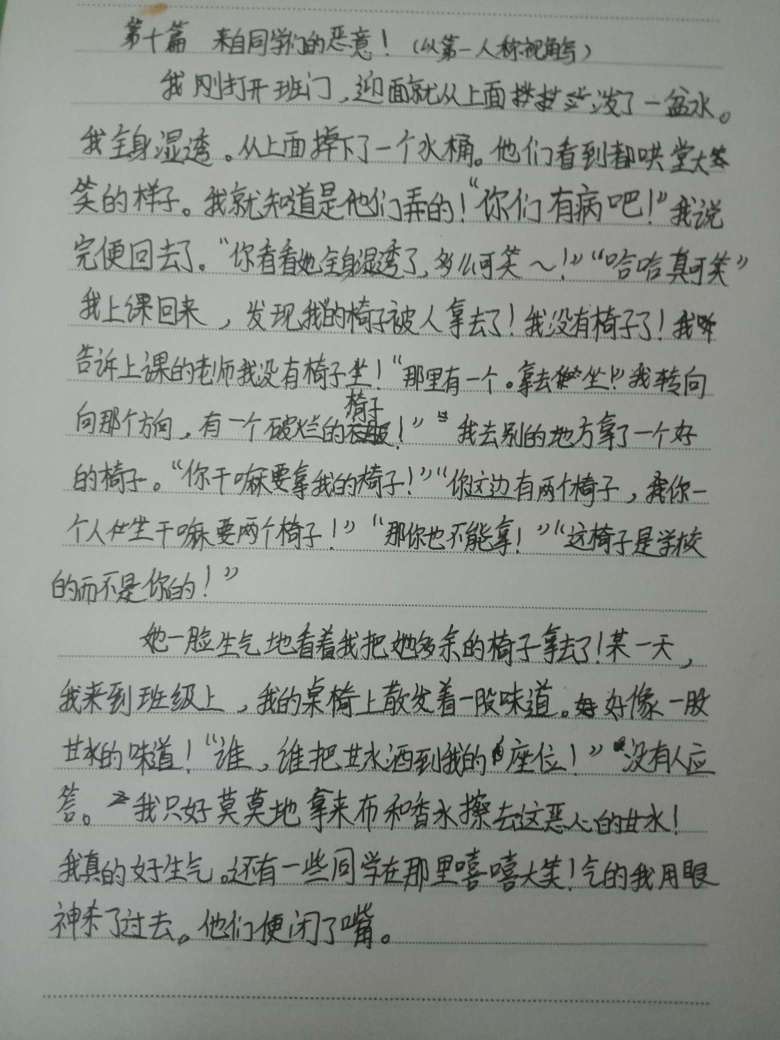 第十篇 来自同学们的恶意!(以第一人称视角写)
我刚打开班门,迎面就从上面泼了一盆水。
我全身湿透。从上面掉下了一个水桶。他们看到都哄堂大
笑的样子。我就知道是他们弄的!“你们有病吧!”我说
完便回去了。“你看看她全身湿透了,多么可笑~!”“哈哈真可笑”
我上课回来,发现我的椅子被人拿去了!我没有椅子了!我
告诉上课的老师我没有椅子坐!“那里有一个。拿去坐!”我转向
向那个方向,有一个破烂的椅子!” 我去别的地方拿了一个好
的椅子。“你干嘛要拿我的椅子!”“你这边有两个椅子,你一
个人坐干嘛要两个椅子!”“那你也不能拿!”“这椅子是学校
的而不是你的!”
她一脸生气地看着我把她多余的椅子拿去了!某一天,
我来到班级上,我的桌椅上散发着一股味道。好像一股
甘水的味道!“谁,谁把甘水洒到我的座位!”没有人应
答。我只好莫莫地拿来布和香水擦去这恶心的甘水!
我真的好生气。还有一些同学在那里嘻嘻大笑!气的我用眼
神杀了过去。他们便闭了嘴。